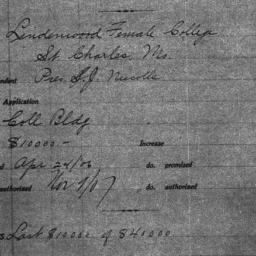 Lindenwood Female College
St Charles, Mo.
ndent Pres. S.J. Niccolls
Application
Coll Bldg
$10000.- Increase
d Apr 24/06 do. promised
authorized Nov 9/07 do. authorized
s Last $10000 of $40000